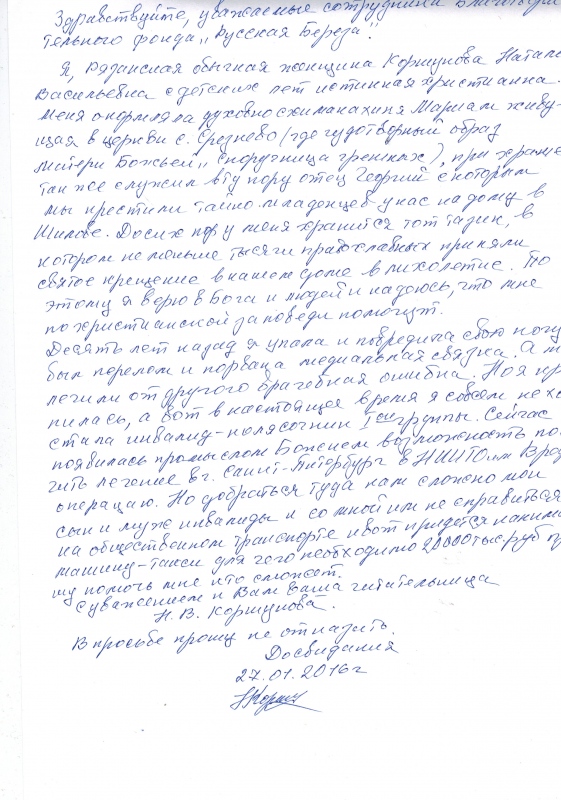 Здравствуйте, уважаемые сотрудники Благотвори
тельного фонда „Русская Береза".
Я, Рязанская обычная женщина Коршунова Наталь
Васильевна с детских лет истинная христианна.
Меня окормляла духовно схиманахиня Мариам живу-
щая в церкви с. Срезнево (где чудотворный образ
Матери Божьей „Споручница грешных), при храме
так же служил в ту пору отец Георгий с которым
мы крестили тайно младенцев у нас на дому в
Шилове. До сих пор у меня хранится тот тазик, в
котором не меньше тысячи православных приняли
святое крещение в нашем доме в лихолетие. По
этому я верю в Бога и людей и надеюсь, что мне
по христианской заповеди помогут.
Десять лет назад я упала и повредила свою ногу
был перелом и порваца медиальная связка. А
лечили от другого врачебная ошибка. Но я
пилась, а вот в настоящее время я совсем не хо
стала инвалид-колясочник I ой группы. Сейчас
появилась промыслом Божием возможность по
чить лечение в г. Санкт-Питербург в НИИТО им Вред
операцию. Но добраться туда нам сложно мои
сын и муж инвалиды и со мной им не справиться
на общественном транспорте и вот придется наним
машину-такси для чего необходимо 20000 тыс руб пр
шу помочь мне кто сможет.
С уважением к Вам Ваша читательница
Н. В. Коршунова.
В просьбе прошу не отказать.
Досвидания
27.01.2016г